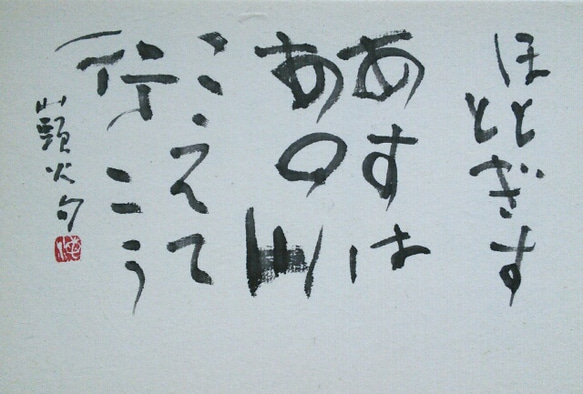 ほととぎす
あすは
あの山
こえて
行こう
山頭火句